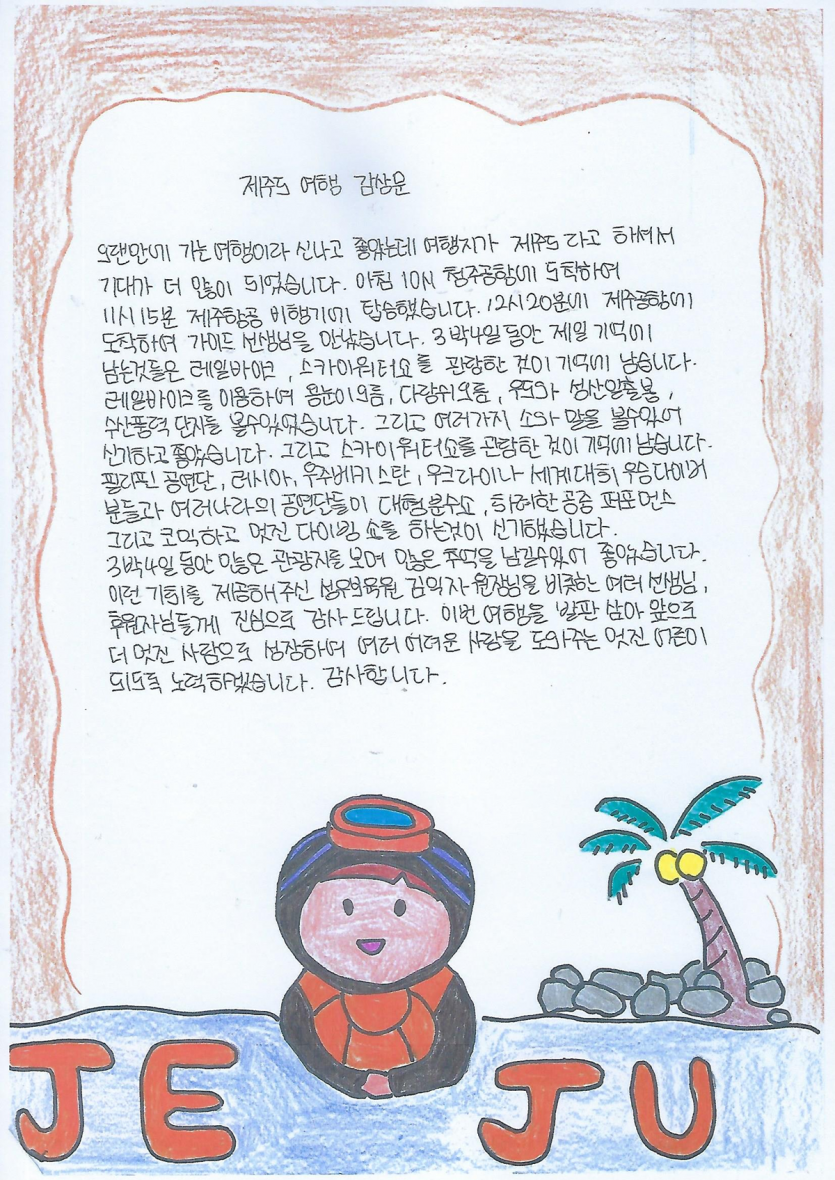 제주도 여행 감상문
오랜만에 가는 여행이라 신나고 좋았는데 여행지가 제주도 라고 하셔서
기대가 더 많이 되었습니다. 아침 10시 청주공항에 도착하여
11시 15분 제주항공 비행기에 탑승했습니다. 12시 20분에 제주공항에
도착하여 가이드 선생님을 만났습니다. 3박4일 동안 제일 기억에
남는것들은 레일바이크, 스카이워터쇼를 관람한 것이 기억에 남습니다.
레일바이크를 이용하여 용눈이오름, 다랑쉬오름, 우도와 성산일출봉,
수산풍력 단지를 볼수있었습니다. 그리고 여러가지 소와 말을 볼수있어
신기하고 좋았습니다. 그리고 스카이워터쇼를 관람한 것이 기억에 남습니다.
필리핀 공연단, 러시아, 우주베키스탄, 우크라이나 세계대회 우승다이버
분들과 여러나라의 공연단들이 대형분수쇼, 화려한 공중 퍼포먼스
그리고 코믹하고 멋진 다이빙 쇼를 하는것이 신기했습니다.
3박4일 동안 많은 관광지를 보며 많은 추억을 남길수있어 좋았습니다.
이런 기회를 제공해주신 성우보육원 김익자 원장님을 비롯한 여러 선생님,
후원자님들께 진심으로 감사드립니다. 이번 여행을 발판 삼아 앞으로
더 멋진 사람으로 성장하여 여러 어려운 사람을 도와주는 멋진 어른이
되도록 노력하겠습니다. 감사합니다.
JEJU